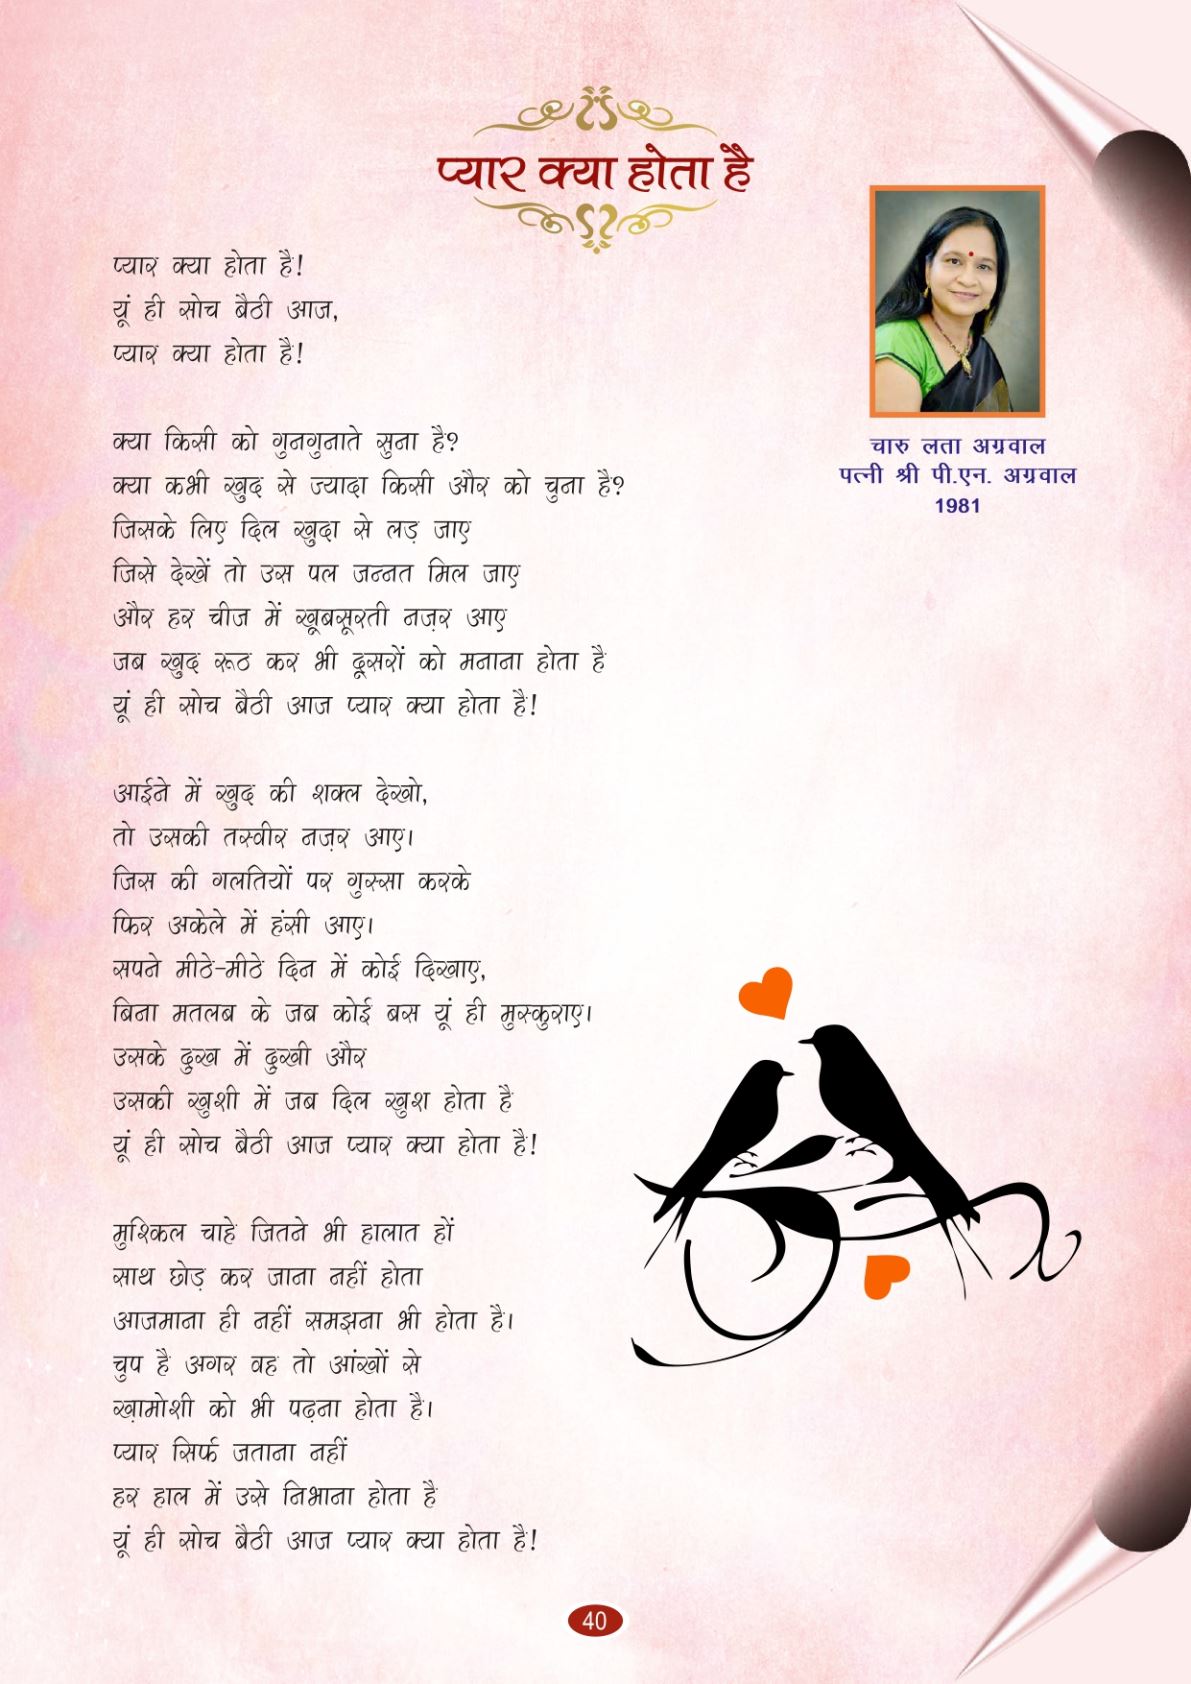 प्यार क्या होता है
प्यार क्या होता है!
यूं ही सोच बैठी आज,
प्यार क्या होता है!
चारु लता अग्रवाल
पत्नी श्री पी.एन. अग्रवाल
1981
क्या किसी को गुनगुनाते सुना है?
क्या कभी खुद से ज्यादा किसी और को चुना है?
जिसके लिए दिल खुदा से लड़ जाए
जिसे देखें तो उस पल जन्नत मिल जाए
और हर चीज में खूबसूरती नज़र आए
जब खुद रूठ कर भी दूसरों को मनाना होता है
यूं ही सोच बैठी आज प्यार क्या होता है!
आईने में खुद की शक्ल देखो,
तो उसकी तस्वीर नज़र आए।
जिस की गलतियों पर गुस्सा करके
फिर अकेले में हंसी आए।
सपने मीठे-मीठे दिन में कोई दिखाए,
बिना मतलब के जब कोई बस यूं ही मुस्कुराए।
उसके दुख में दुखी और
उसकी खुशी में जब दिल खुश होता है
यूं ही सोच बैठी आज प्यार क्या होता है!
मुश्किल चाहे जितने भी हालात हों
साथ छोड़ कर जाना नहीं होता
आजमाना ही नहीं समझना भी होता है।
चुप है अगर वह तो आंखों से
ख़ामोशी को भी पढ़ना होता है।
प्यार सिर्फ जताना नहीं
हर हाल में उसे निभाना होता है
यूं ही सोच बैठी आज प्यार क्या होता है!
40